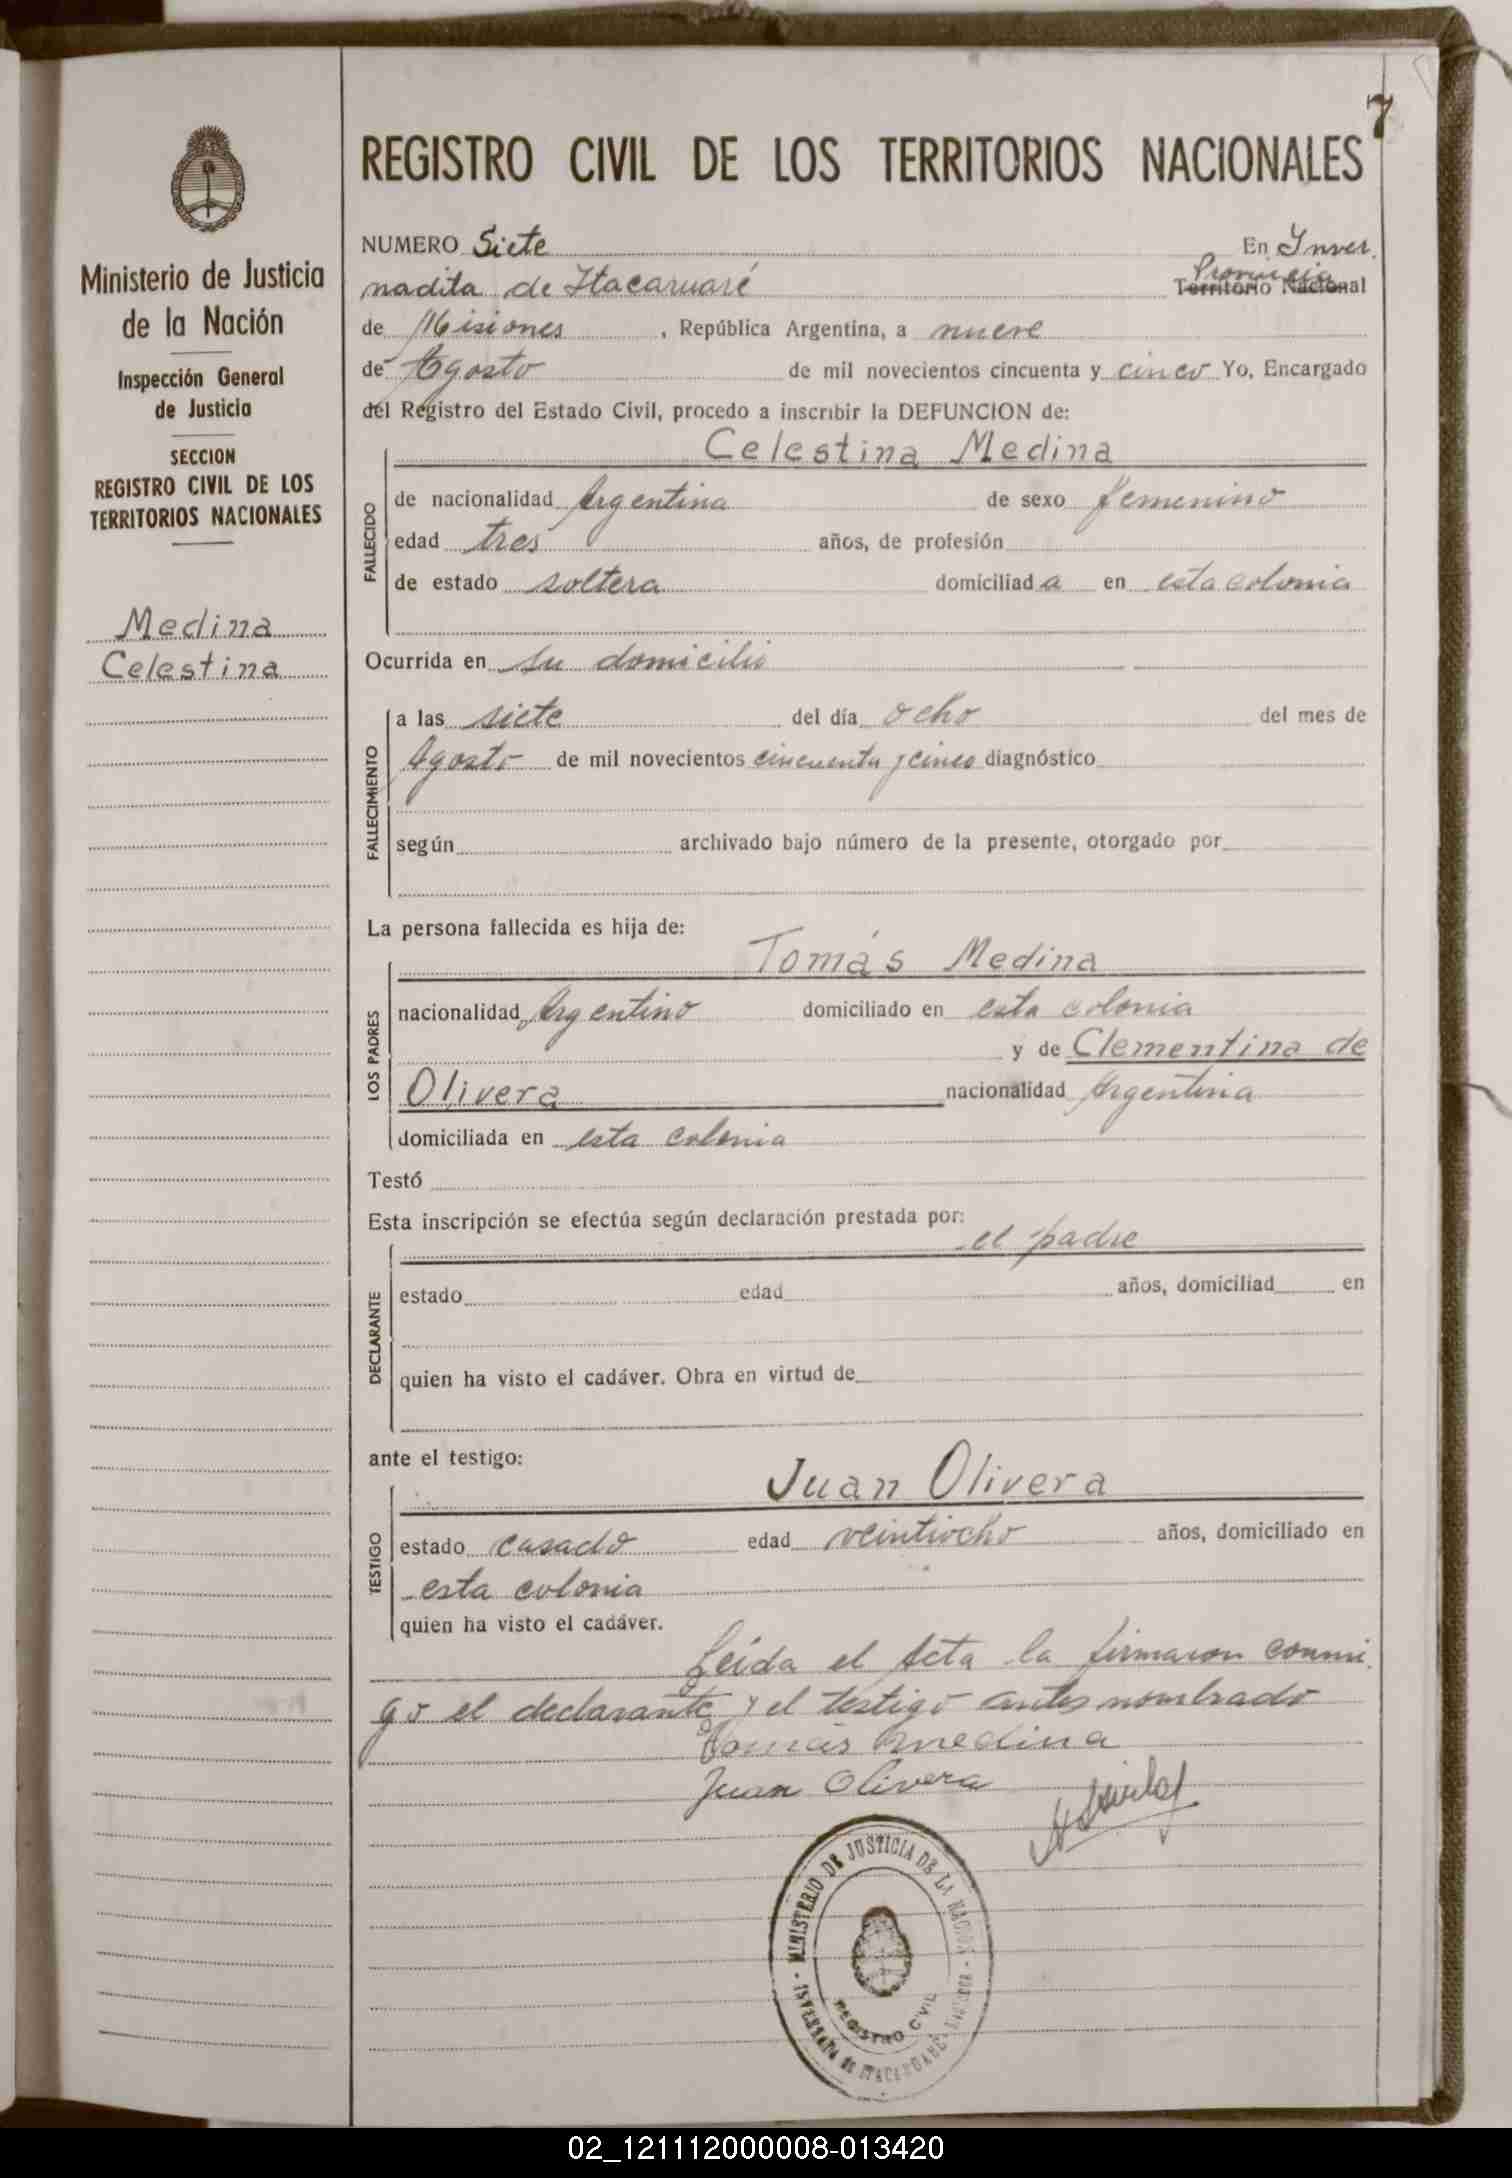 7
REGISTRO CIVIL DE LOS TERRITORIOS NACIONALES
Ministerio de Justicia
de la Nación
Inspección General
de Justicia
SECCION
REGISTRO CIVIL DE LOS
TERRITORIOS NACIONALES
Medina
Celestina
NUMERO Siete En Inver
Provincia
nadita de Itacaruaré Territorio Nacional
de Misiones, República Argentina, a nueve
de Agosto de mil novecientos cincuenta y cinco Yo, Encargado
del Registro del Estado Civil, procedo a inscribir la DEFUNCION de:
Celestina Medina
FALLECIDO
de nacionalidad Argentina de sexo femenino
edad tres años, de profesión
de estado soltera domiciliada en esta colonia
Ocurrida en su domicilio
FALLECIMIENTO
a las siete del día ocho del mes de
Agosto de mil novecientos cincuenta y cinco diagnóstico
según archivado bajo número de la presente, otorgado por
La persona fallecida es hija de:
Tomás Medina
LOS PADRES
nacionalidad Argentino domiciliado en esta colonia
y de Clementina de
Olivera nacionalidad Argentina
domiciliada en esta colonia
Testó
Esta inscripción se efectúa según declaración prestada por:
el padre
DECLARANTE
estado edad años, domiciliad en
quien ha visto el cadáver. Obra en virtud de
ante el testigo:
Juan Olivera
TESTIGO
estado casado edad veintiocho años, domiciliado en
esta colonia
quien ha visto el cadáver.
Leida el Acta la firmaron conmi
go el declarante y el testigo antes nombrado
Tomás medina
Juan Olivera
MINISTERIO DE JUSTICIA DE LA NACION
REGISTRO CIVIL
DE ITACARUARE
02_121112000008-013420